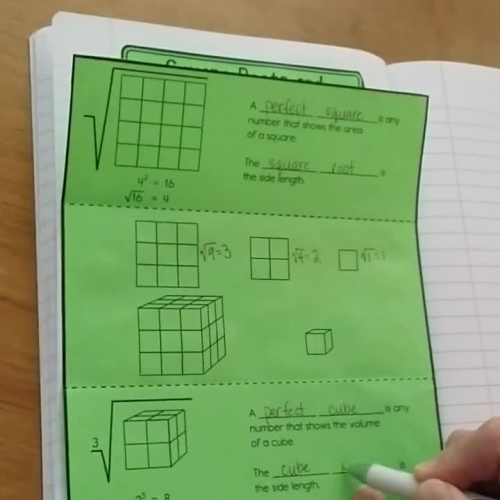 Square Roots and
A perfect square is any
number that shows the area
of a square.
The square root is
the side length.
4² = 16
√16 = 4
√9=3
√4=2
√1=1
3
A perfect cube is any
number that shows the volume
of a cube.
The cube is
the side length.
2³ = 8